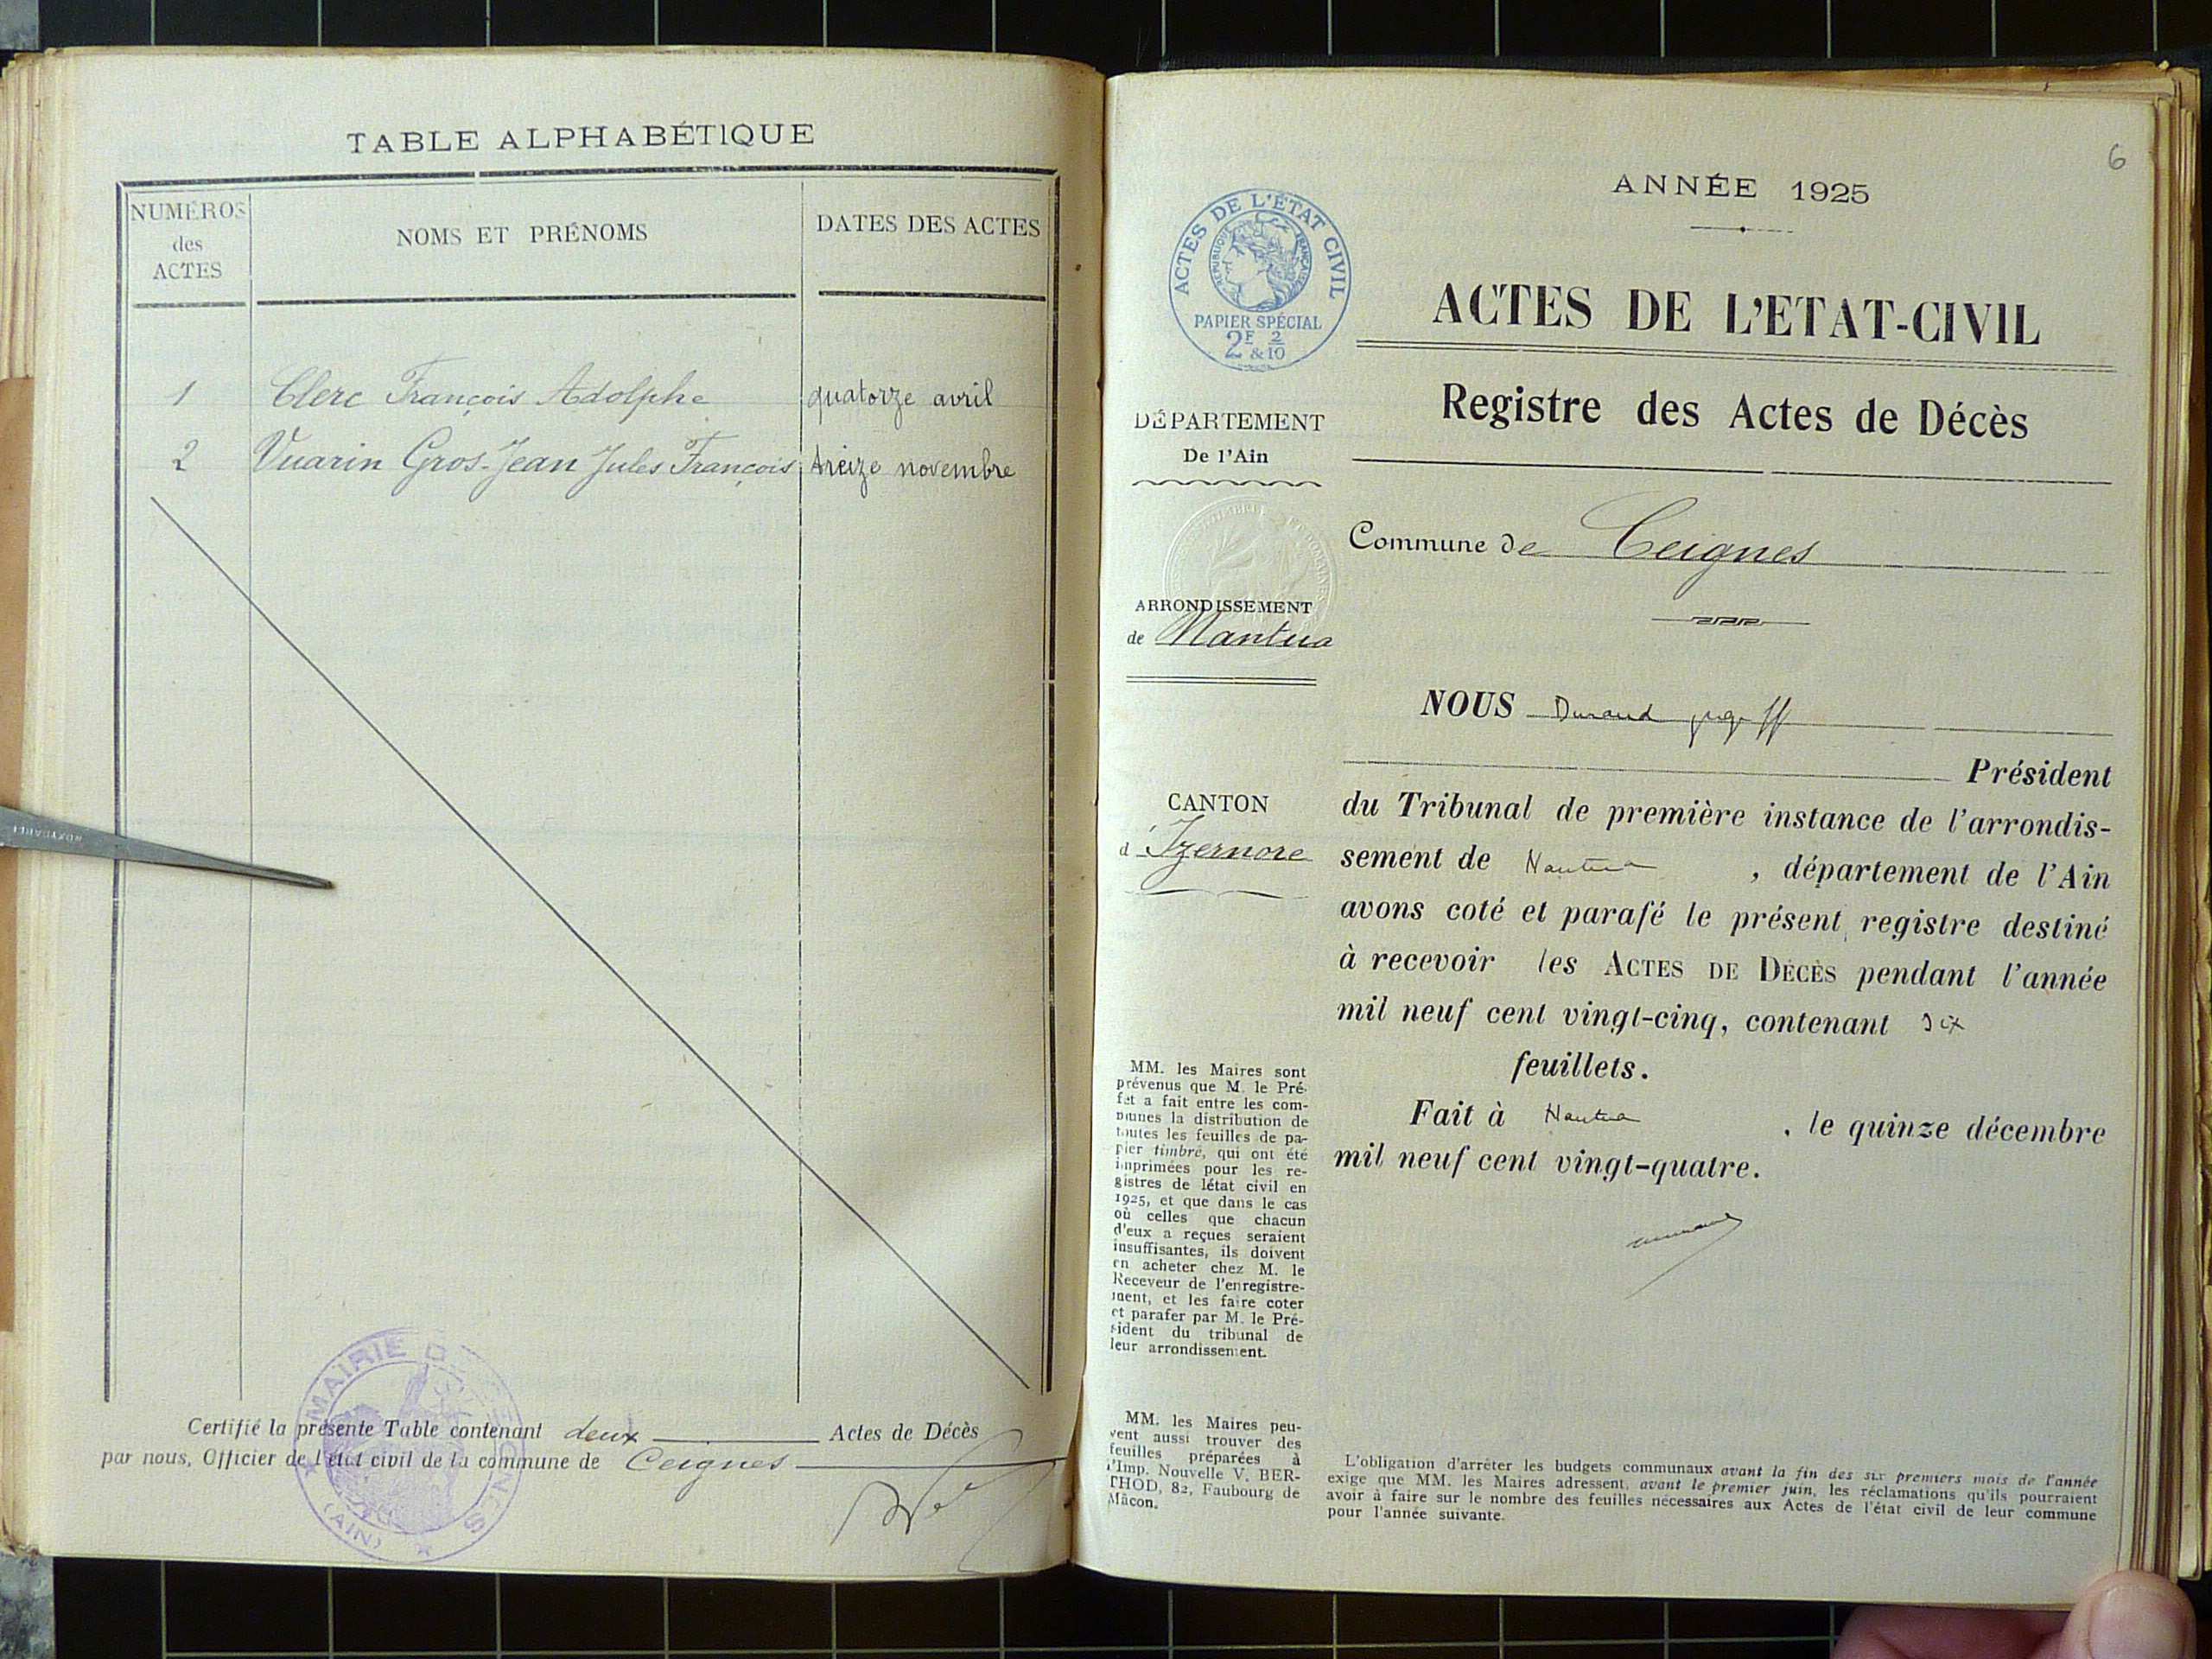 TABLE ALPHABÉTIQUE
NUMÉROS
des
ACTES
NOMS ET PRÉNOMS
DATES DES ACTES
1 Clerc François Adolphe quatorze avril
2 Vuarin Gros-Jean Jules François treize novembre
MAIRIE DE CEIGNES
(AIN)
Certifié la présente Table contenant deux Actes de Décès
par nous, Officier de l'état civil de la commune de Ceignes
6
ANNÉE 1925
ACTES DE L'ÉTAT CIVIL
RÉPUBLIQUE FRANÇAISE
PAPIER SPÉCIAL
2F & 2/10
ACTES DE L'ETAT-CIVIL
Registre des Actes de Décès
DÉPARTEMENT
De l'Ain
Commune de Ceignes
ARRONDISSEMENT
de Nantua
CANTON
d'Izernore
NOUS Durand
Président
du Tribunal de première instance de l'arrondis-
sement de Nantua , département de l'Ain
avons coté et parafé le présent registre destiné
à recevoir les ACTES DE DÉCÈS pendant l'année
mil neuf cent vingt-cinq, contenant six
feuillets.
Fait à Nantua , le quinze décembre
mil neuf cent vingt-quatre.
MM. les Maires sont
prévenus que M. le Pré-
fet a fait entre les com-
munes la distribution de
toutes les feuilles de pa-
pier timbré, qui ont été
imprimées pour les re-
gistres de létat civil en
1925, et que dans le cas
où celles que chacun
d'eux a reçues seraient
insuffisantes, ils doivent
en acheter chez M. le
Receveur de l'enregistre-
ment, et les faire coter
et parafer par M. le Pré-
sident du tribunal de
leur arrondissement.
MM. les Maires peu-
vent aussi trouver des
feuilles préparées à
l'Imp. Nouvelle V. BER-
THOD, 82, Faubourg de
Mâcon.
L'obligation d'arrêter les budgets communaux avant la fin des six premiers mois de l'année
exige que MM. les Maires adressent, avant le premier juin, les réclamations qu'ils pourraient
avoir à faire sur le nombre des feuilles nécessaires aux Actes de l'état civil de leur commune
pour l'année suivante.